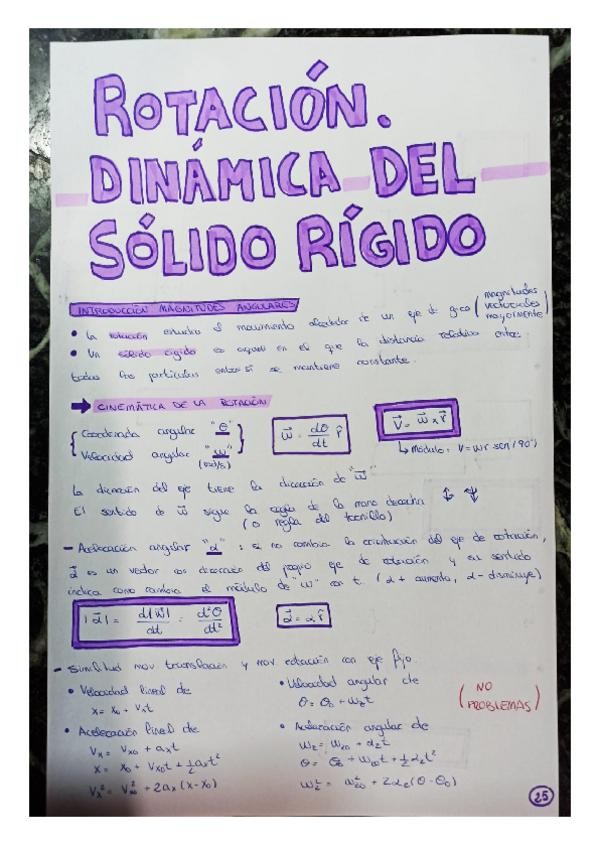 ROTACIÓN.
DINÁMICA DEL
SÓLIDO RÍGIDO
INTRODUCCIÓN MAGNITUDES ANGULARES
• La rotación estudia el movimiento alrededor de un eje de giro (magnitudes vectoriales mayormente)
• Un sólido rígido es aquel en el que la distancia relativa entre
todas las partículas entre sí se mantiene constante.
→ CINEMÁTICA DE LA ROTACIÓN
Coordenada angular "θ"
Velocidad angular "ω"
(rad/s)
ω⃗ = dθ/dt r̂
v⃗ = ω⃗ x r⃗
↳ Módulo: v = ωr sen(90°)
La dirección del eje tiene la dirección de "ω⃗"
El sentido de ω⃗ sigue la regla de la mano derecha
(o regla del tornillo)
- Aceleración angular "α": si no cambia la orientación del eje de rotación,
α⃗ es un vector con dirección del propio eje de rotación y su sentido
indica como cambia el módulo de "ω" con t. (α+ aumenta, α- disminuye)
|α⃗| = d|ω⃗|/dt = d²θ/dt²
α⃗ = α r̂
- Similitud mov translación y mov rotación con eje fijo.
• Velocidad lineal cte
x = x₀ + vₓt
• Aceleración lineal cte
vₓ = vₓ₀ + aₓt
x = x₀ + vₓ₀t + ½aₓt²
vₓ² = vₓ₀² + 2aₓ(x-x₀)
• Velocidad angular cte
θ = θ₀ + ω_z t
• Aceleración angular cte
ω_z = ω_z0 + α_z t
θ = θ₀ + ω_z0 t + ½α_z t²
ω_z² = ω_z0² + 2α_z(θ-θ₀)
(NO
PROBLEMAS)
25